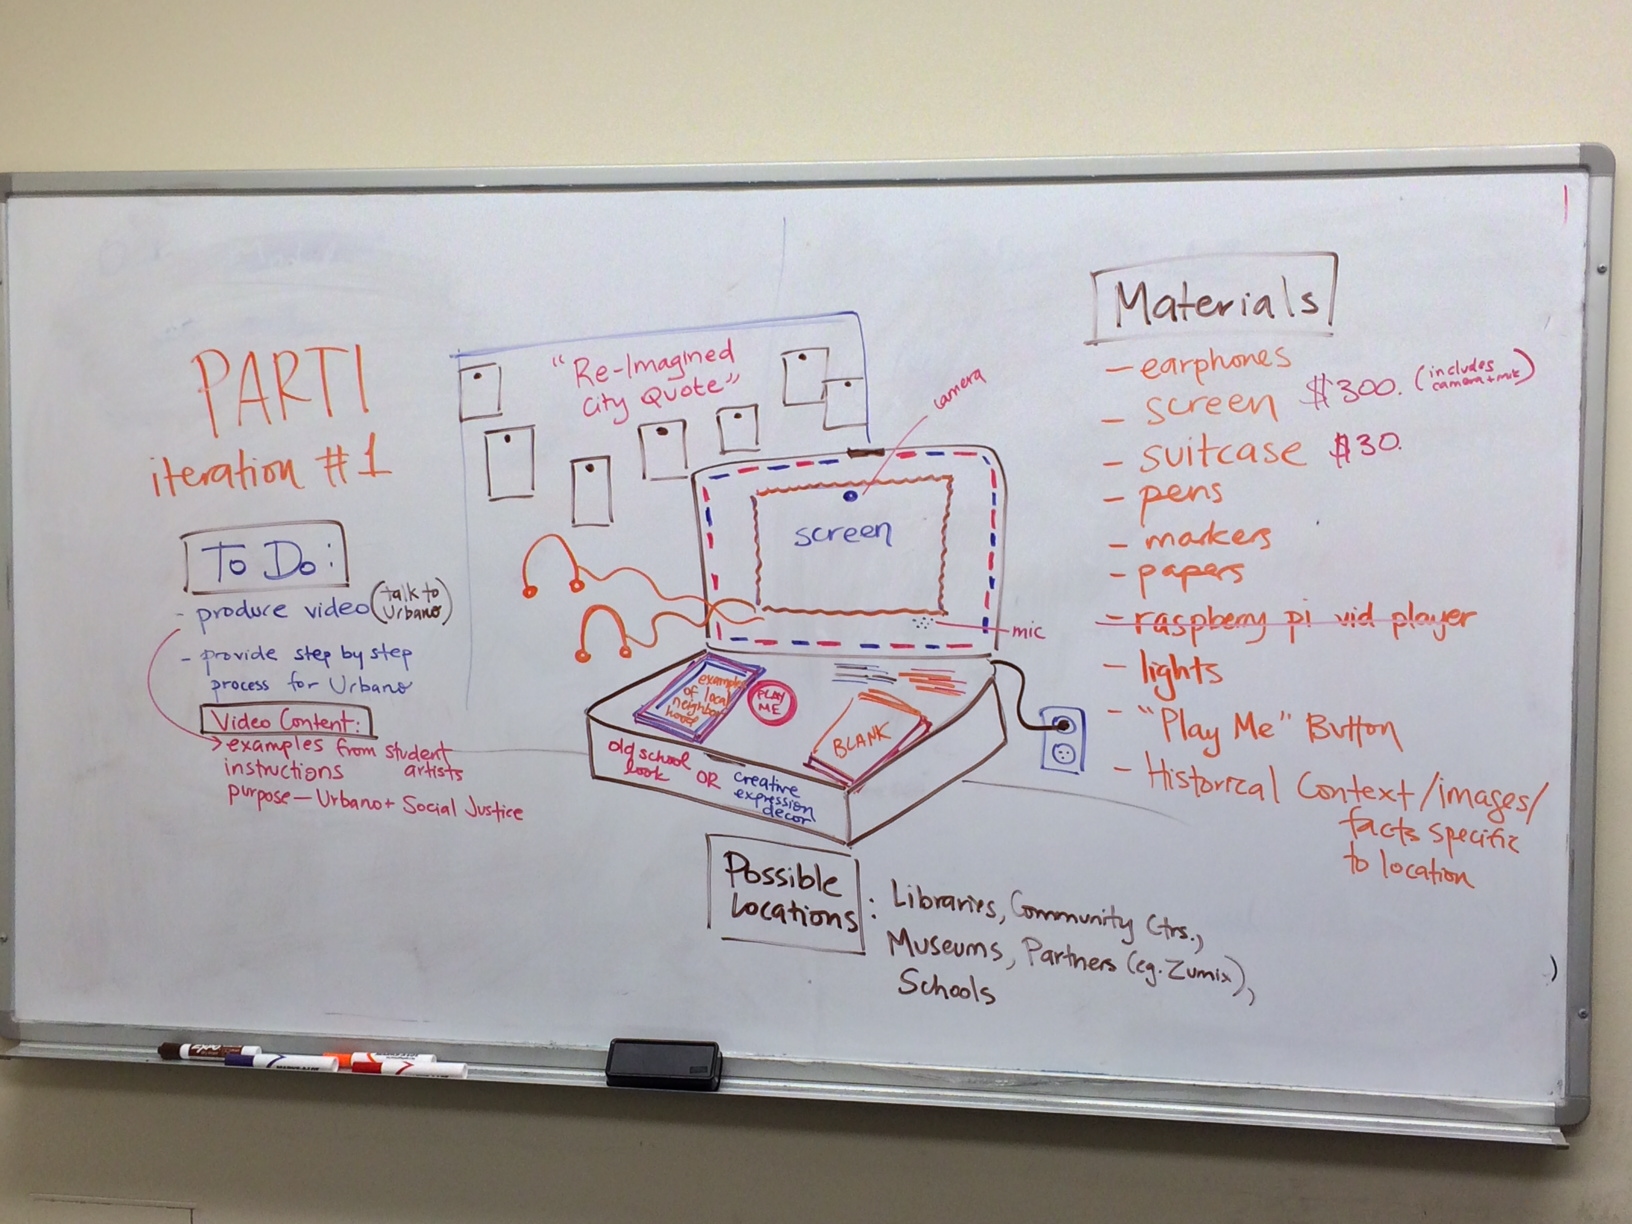 PART I
iteration #1
To Do:
- produce video (talk to
Urbano)
- provide step by step
process for Urbano
Video Content:
examples from student
instructions artists
purpose — Urbano + Social Justice
"Re-Imagined
City Quote"
camera
screen
mic
examples
of local
neighbor
hood
PLAY
ME
BLANK
old school
look OR creative
expression
decor
Possible
Locations : Libraries, Community Ctrs.,
Museums, Partners (eg. Zumix),
Schools
Materials
- earphones
- screen $300. (includes
camera + mic)
- suitcase $30.
- pens
- markers
- papers
- raspberry pi vid player
- lights
- "Play Me" Button
- Historical Context/images/
facts specific
to location
EXPO